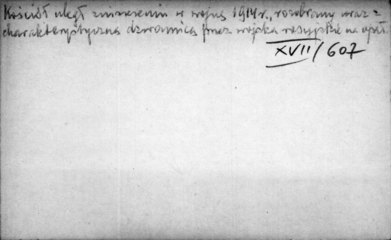 Kościół uległ zniszczeniu w wojnę 1914 r., rozebrany wraz z
charakterystyczną dzwonnicą przez wojska rosyjskie na opał.
XVII/607